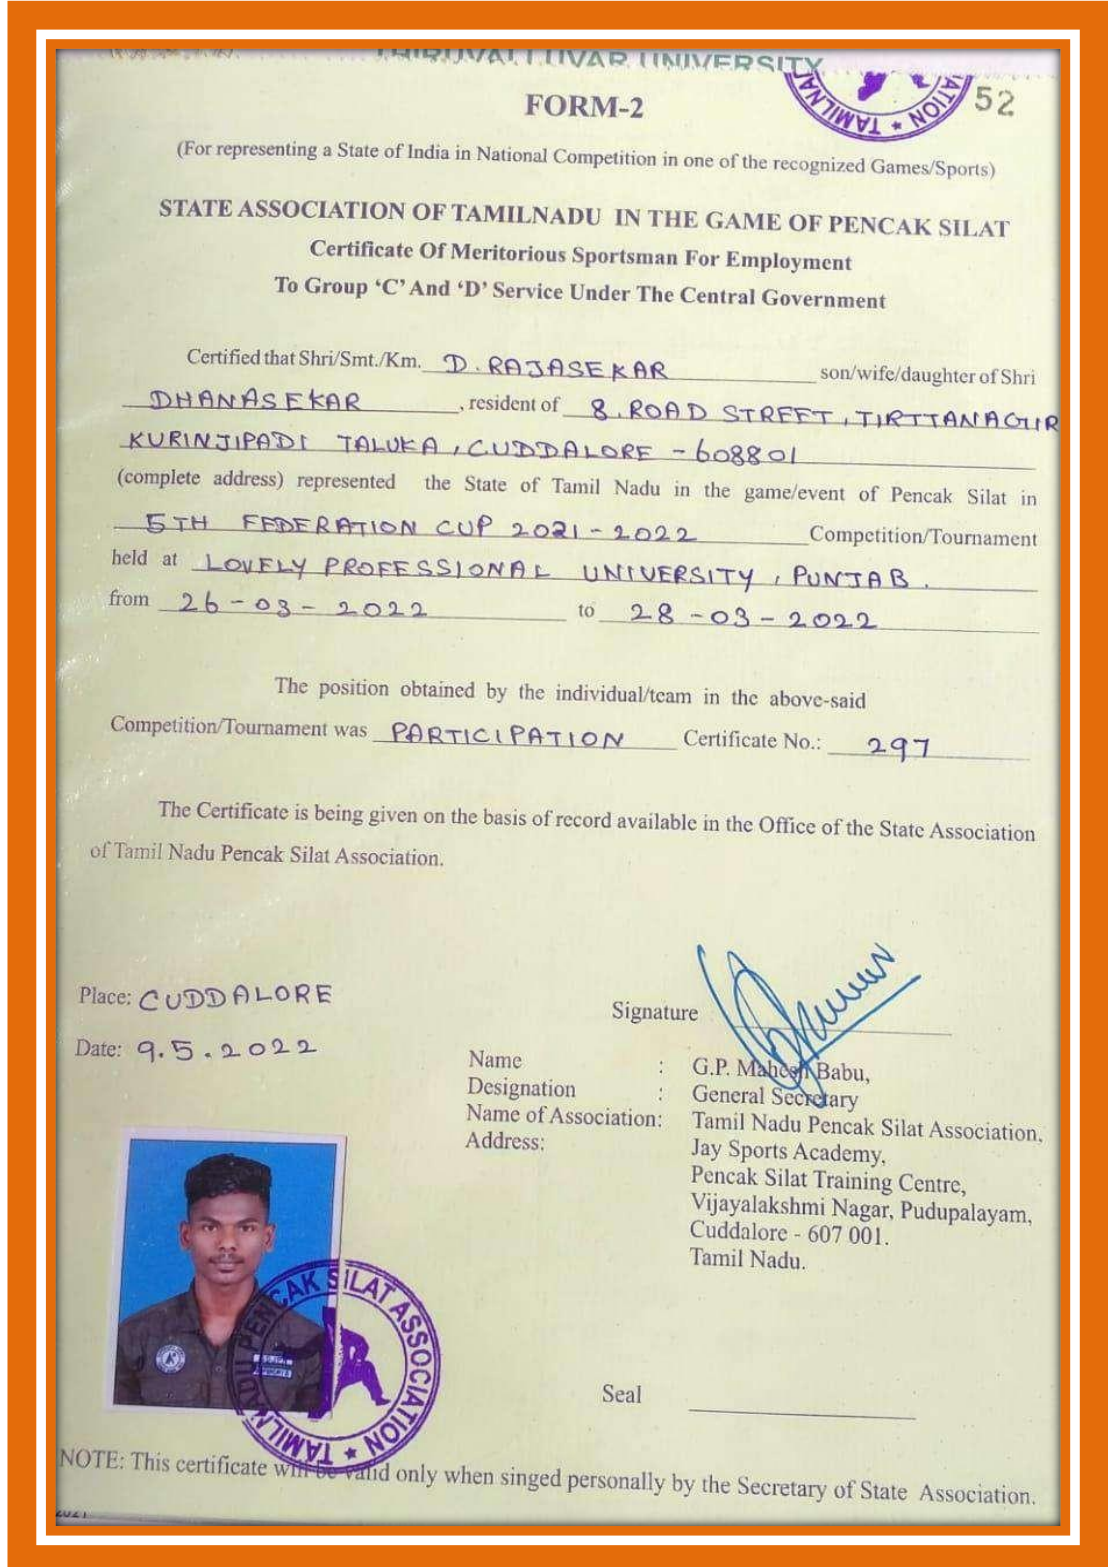 THIRUVALLUVAR UNIVERSITY
52
FORM-2
(For representing a State of India in National Competition in one of the recognized Games/Sports)
STATE ASSOCIATION OF TAMILNADU IN THE GAME OF PENCAK SILAT
Certificate Of Meritorious Sportsman For Employment
To Group ‘C’ And ‘D’ Service Under The Central Government
Certified that Shri/Smt./Km. D. RAJASEKAR son/wife/daughter of Shri
DHANASEKAR, resident of 8. ROAD STREET, TIRTTANAGIR
KURINJIPADI TALUKA, CUDDALORE - 608801
(complete address) represented the State of Tamil Nadu in the game/event of Pencak Silat in
5TH FEDERATION CUP 2021-2022 Competition/Tournament
held at LOVELY PROFESSIONAL UNIVERSITY, PUNJAB.
from 26-03-2022 to 28-03-2022
The position obtained by the individual/team in the above-said
Competition/Tournament was PARTICIPATION Certificate No.: 297
The Certificate is being given on the basis of record available in the Office of the State Association
of Tamil Nadu Pencak Silat Association.
Place: CUDDALORE
Date: 9.5.2022
Signature
Name : G.P. Mahesh Babu,
Designation : General Secretary
Name of Association: Tamil Nadu Pencak Silat Association,
Address: Jay Sports Academy,
Pencak Silat Training Centre,
Vijayalakshmi Nagar, Pudupalayam,
Cuddalore - 607 001.
Tamil Nadu.
TAMILNADU PENCAK SILAT ASSOCIATION
Seal
NOTE: This certificate will be valid only when singed personally by the Secretary of State Association.